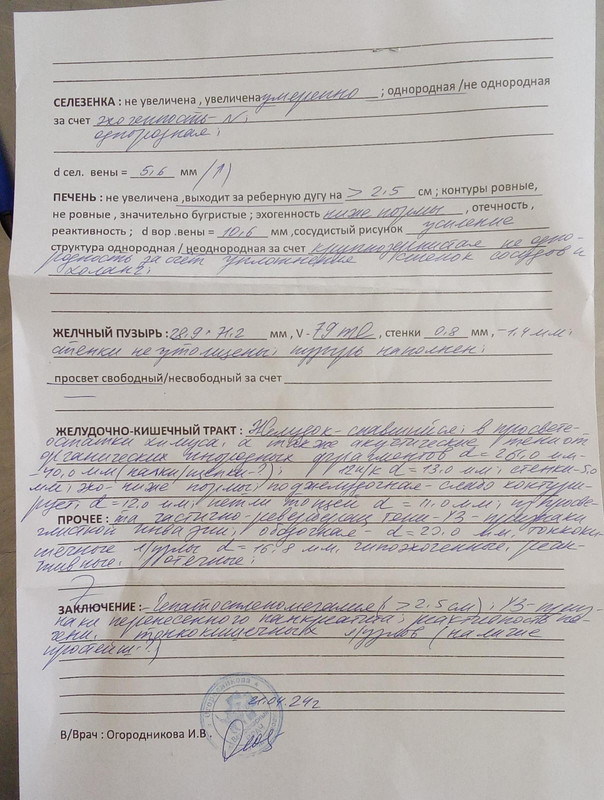 СЕЛЕЗЕНКА : не увеличена , увеличена умеренно ; однородная /не однородная
за счет эхогенность - N ;
однородная ;
d сел. вены = 5,6 мм /↑)
ПЕЧЕНЬ : не увеличена ,выходит за реберную дугу на > 2.5 см ; контуры ровные,
не ровные , значительно бугристые ; эхогенность ниже нормы , отечность ,
реактивность ; d вор .вены = 10,6 мм ,сосудистый рисунок усиление
структура однородная / неоднородная за счет крупнозернистая не одно-
родность за счет уплотнения стенок сосудов и
холанг ;
ЖЕЛЧНЫЙ ПУЗЫРЬ : 28,9 × 71,2 мм , V - 79 ml , стенки 0,8 мм , - 1,4 мм.
стенки не утолщены ; пузырь наполнен ;
просвет свободный/несвободный за счет
ЖЕЛУДОЧНО-КИШЕЧНЫЙ ТРАКТ : Желудок - спавшийся ; в просвете -
остатки химуса ; а также акустические тени от
органических инородных фрагментов d = 26,0 мм -
40,0 мм (палки/щепки - ?) ; 12п/к d = 13.0 мм ; стенки - 5.0
мм ; эхо - ниже нормы ; поджелудочная - слабо контури-
рует. d = 12,0 мм ; петли тощей d = 11,0 мм ;
ПРОЧЕЕ : УЗ - признаки
глистной инвазии ; ободочная - d = 20,0 мм, тонкоки-
шечные л/узлы d = 16,8 мм, гипоэхогенные, реак-
тивные. отечные ;
ЗАКЛЮЧЕНИЕ : Гепатоспленомегалия ( > 2.5 см) ; УЗ - приз-
наки перенесенного панкреатита ; реактивность пе-
чени. тонкокишечных л/узлов ( наличие
простейш - ?)
21.04.24г
В/Врач : Огородникова И.В